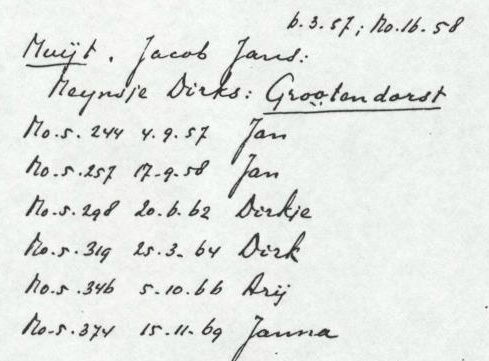 6.3.57; No.16.58
Muijt. Jacob Jans:
Meynsje Dirks: Grootendorst
No.5.244 4.9.57 Jan
No.5.257 17.9.58 Jan
No.5.298 20.6.62 Dirkje
No.5.319 25.3.64 Dirk
No.5.346 5.10.66 Arij
No.5.374 15.11.69 Janna